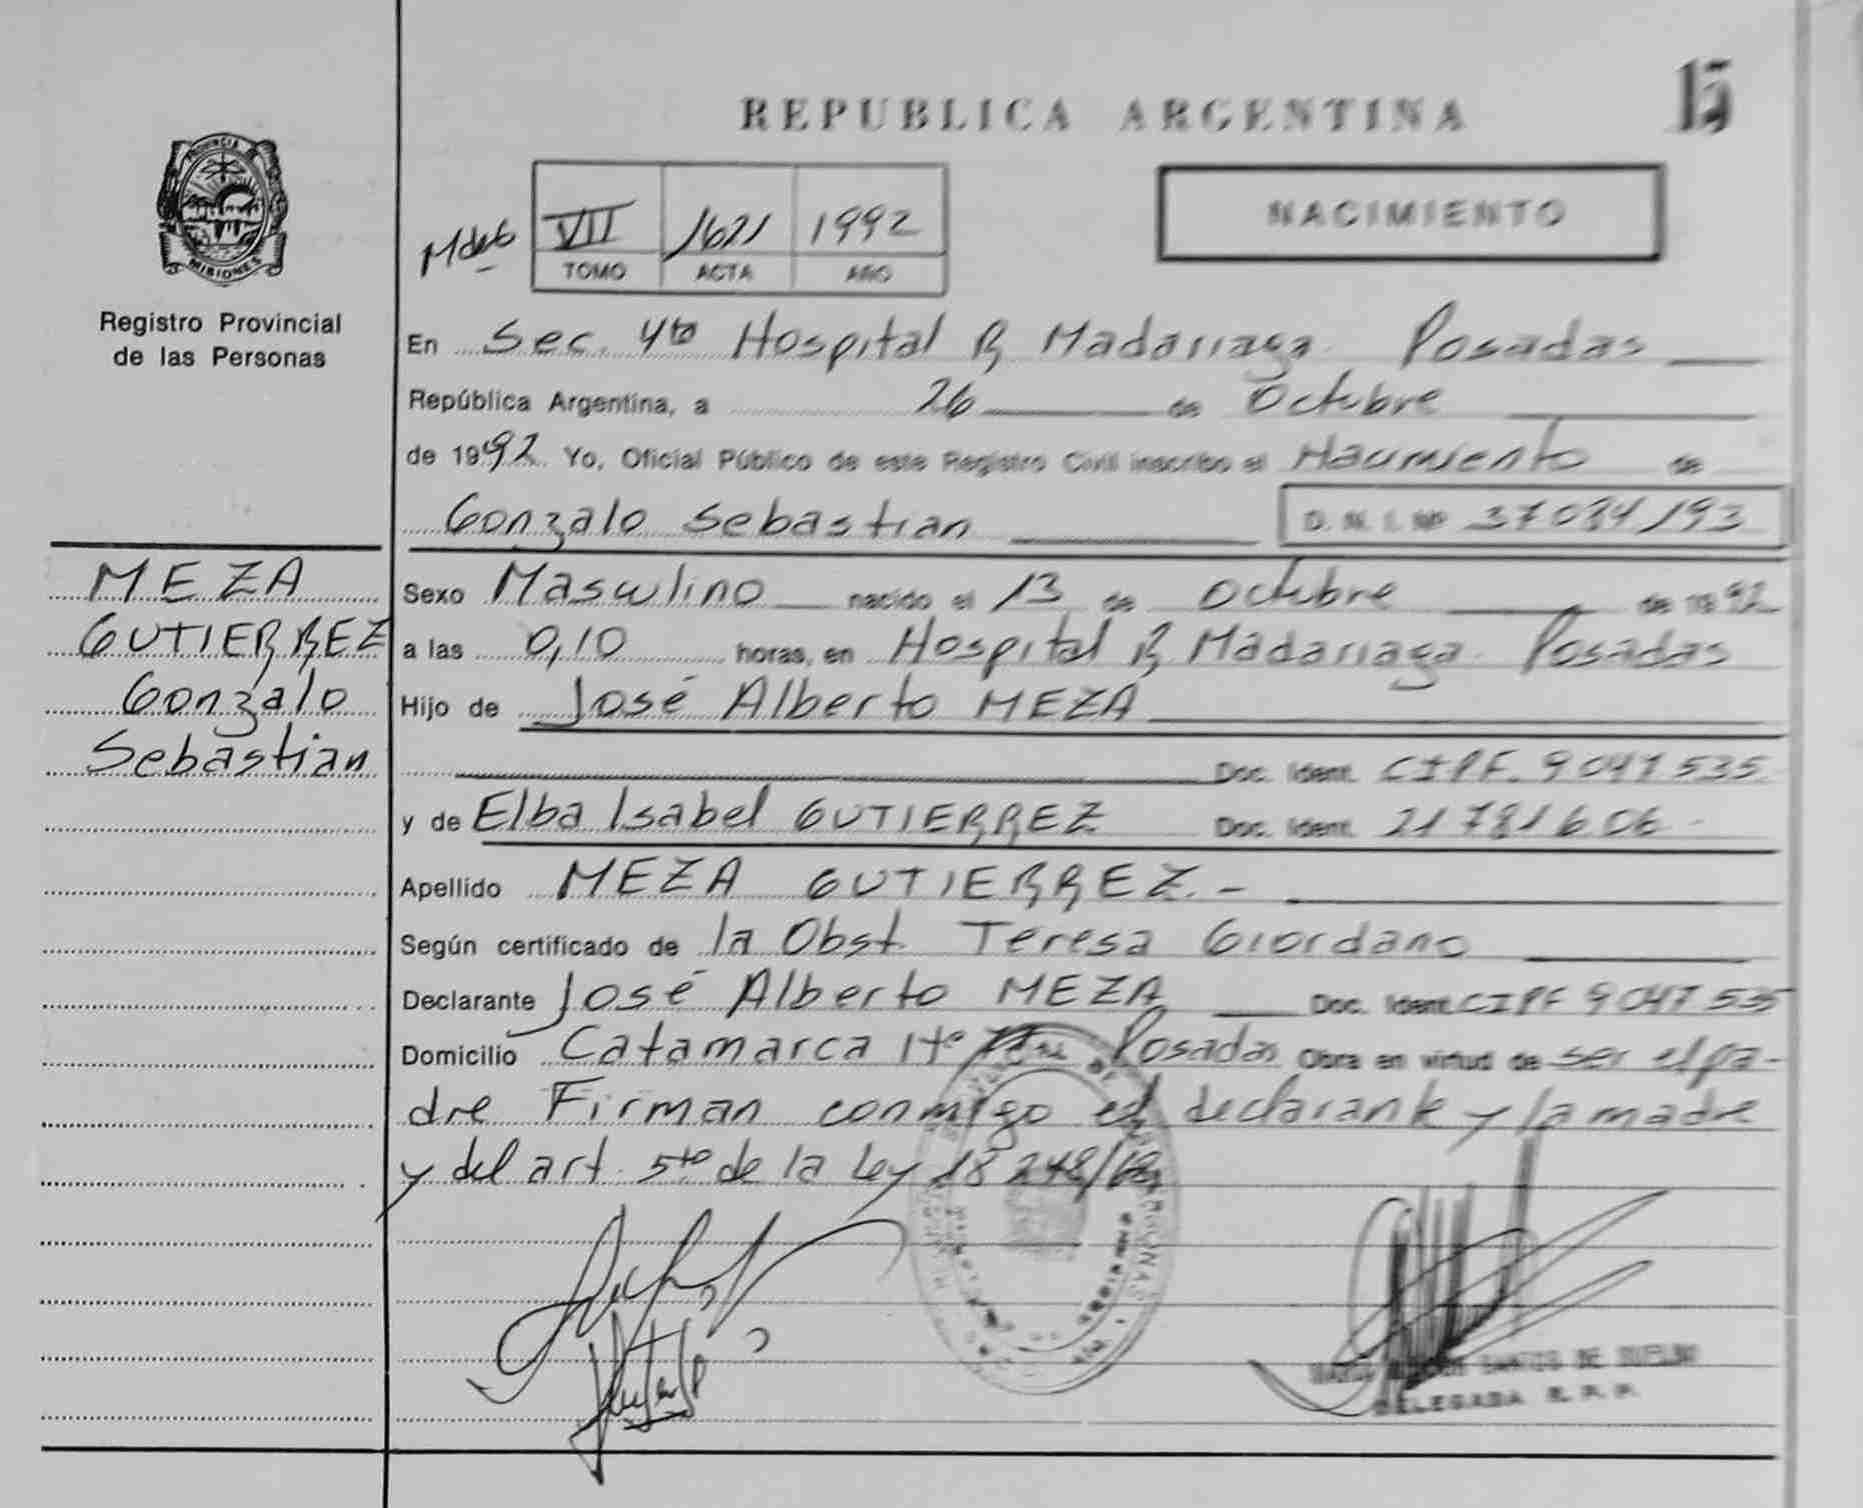 15
REPUBLICA ARGENTINA
PROVINCIA DE
MISIONES
Registro Provincial
de las Personas
VII 1621 1992
TOMO ACTA AÑO
NACIMIENTO
En Sec. 4ta Hospital R Madariaga Posadas
República Argentina, a 26 de Octubre
de 1992 Yo, Oficial Público de este Registro Civil inscribo el Nacimiento de
Gonzalo Sebastian D. N. I. Nº
MEZA
GUTIERREZ
Gonzalo
Sebastian
Sexo Masculino nacido el 13 de Octubre de 1992
a las 0,10 horas, en Hospital R Madariaga Posadas
Hijo de José Alberto MEZA
Doc. Ident. CIPF. 9047535
y de Elba Isabel GUTIERREZ Doc. Ident. 21781606
Apellido MEZA GUTIERREZ.-
Según certificado de la Obst. Teresa Giordano
Declarante José Alberto MEZA Doc. Ident. CIPF 9047535
Domicilio Catamarca Posadas Obra en virtud de ser el pa-
dre Firman conmigo el declarante y la madre
y del art. 5to de la Ley 18248/69
SANTOS DE
DELEGADA R. P. P.